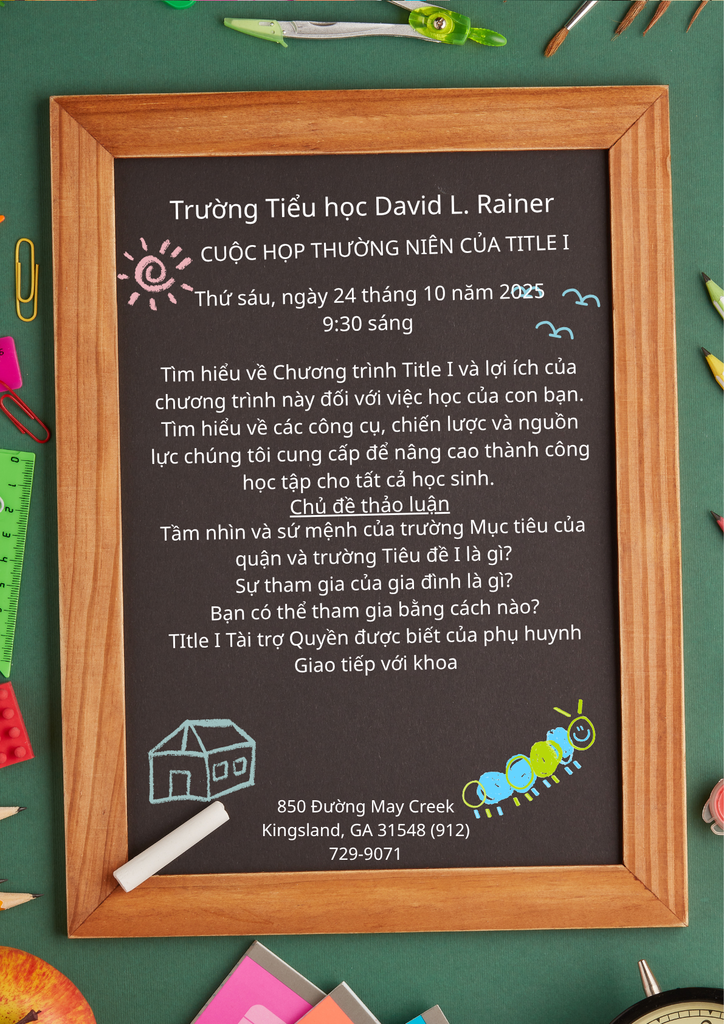 Trường Tiểu học David L. Rainer
CUỘC HỌP THƯỜNG NIÊN CỦA TITLE I
Thứ sáu, ngày 24 tháng 10 năm 2025
9:30 sáng
Tìm hiểu về Chương trình Title I và lợi ích của
chương trình này đối với việc học của con bạn.
Tìm hiểu về các công cụ, chiến lược và nguồn
lực chúng tôi cung cấp để nâng cao thành công
học tập cho tất cả học sinh.
Chủ đề thảo luận
Tầm nhìn và sứ mệnh của trường Mục tiêu của
quận và trường Tiêu đề I là gì?
Sự tham gia của gia đình là gì?
Bạn có thể tham gia bằng cách nào?
TItle I Tài trợ Quyền được biết của phụ huynh
Giao tiếp với khoa
850 Đường May Creek
Kingsland, GA 31548 (912)
729-9071